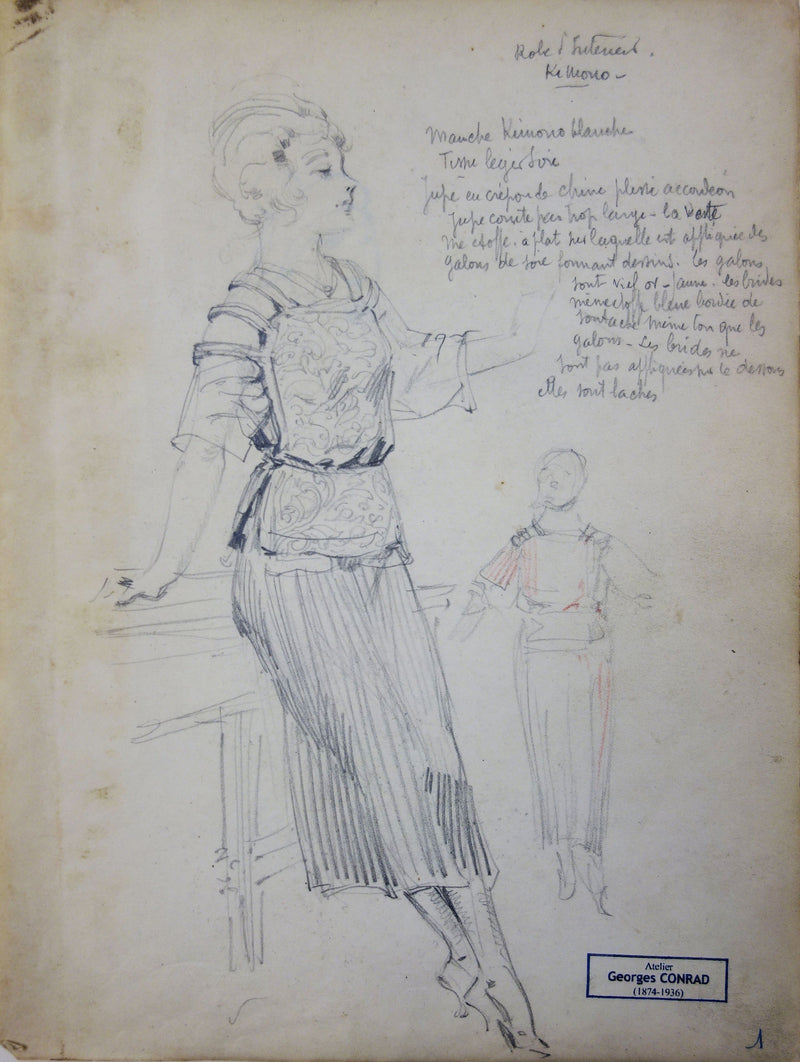 Robe d'Intérieur.
Kimono -
Manche Kimono blanche
Tissu leger Soie
Jupe en crépon de chine plissé accordeon
Jupe courte pas trop large - la veste
me etoffe. à plat sur laquelle est appliquée des
galons de soie formant dessins. les galons
sont vieil or - jaune. les brides
meme etoffe bleue bordée de
soutache meme ton que les
galons - Les brides ne
sont pas appliquées sur le dessous
elles sont laches
Atelier
Georges CONRAD
(1874-1936)
1